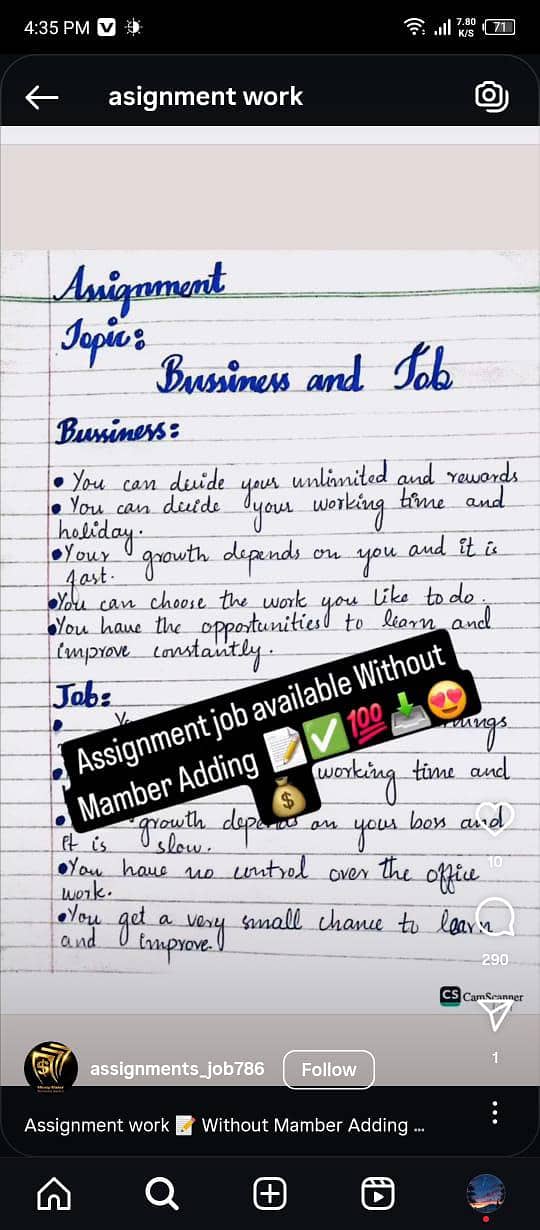 4:35 PM
7.80
K/S
71
asignment work
Assignment
Topic:
Bussiness and Job
Bussiness:
• You can decide your unlimited and rewards
• You can decide your working time and
holiday.
• Your growth depends on you and it is
fast.
• You can choose the work you like to do.
• You have the opportunities to learn and
improve constantly.
Job:
Assignment job available Without
Mamber Adding 📝✅💯📥😍
💰
working time and
growth depends on your boss and
It is slow.
• You have no control over the office
work.
• You get a very small chance to learn
and improve.
10
290
CS CamScanner
1
assignments_job786
Follow
Assignment work 📝 Without Mamber Adding ...